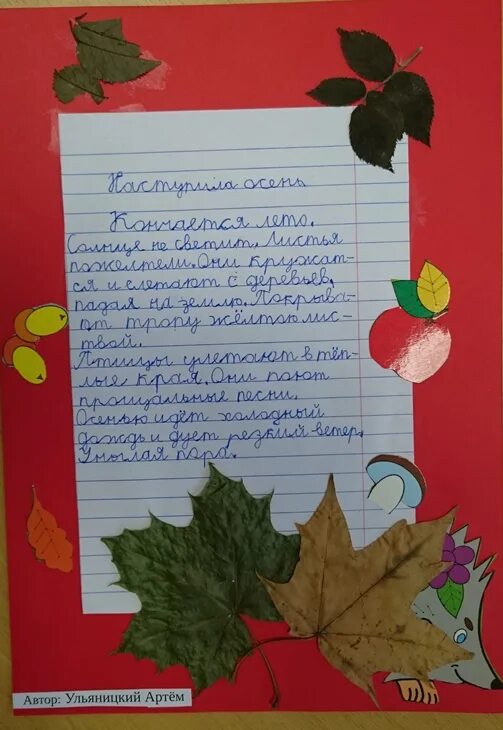 Наступила осень
Кончается лето.
Солнце не светит. Листья
пожелтели. Они кружат-
ся и слетают с деревьев,
падая на землю. Покрыва-
ют тропу жёлтою лис-
твой.
Птицы улетают в тёп-
лые края. Они поют
прощальные песни.
Осенью идёт холодный
дождь и дует резкий ветер.
Унылая пора.
Автор: Ульяницкий Артём